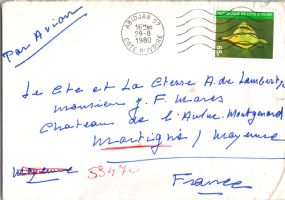 Par Avion
ABIDJAN 07
16H00
29-8
1980
COTE D'IVOIRE
REPUBLIQUE DE COTE D'IVOIRE
65F
Le Cte et La Ctesse A. de Lambert
Monsieur J. F. Mares
Chateau de l'
Martigné / Mayenne
Mayenne
53470
France